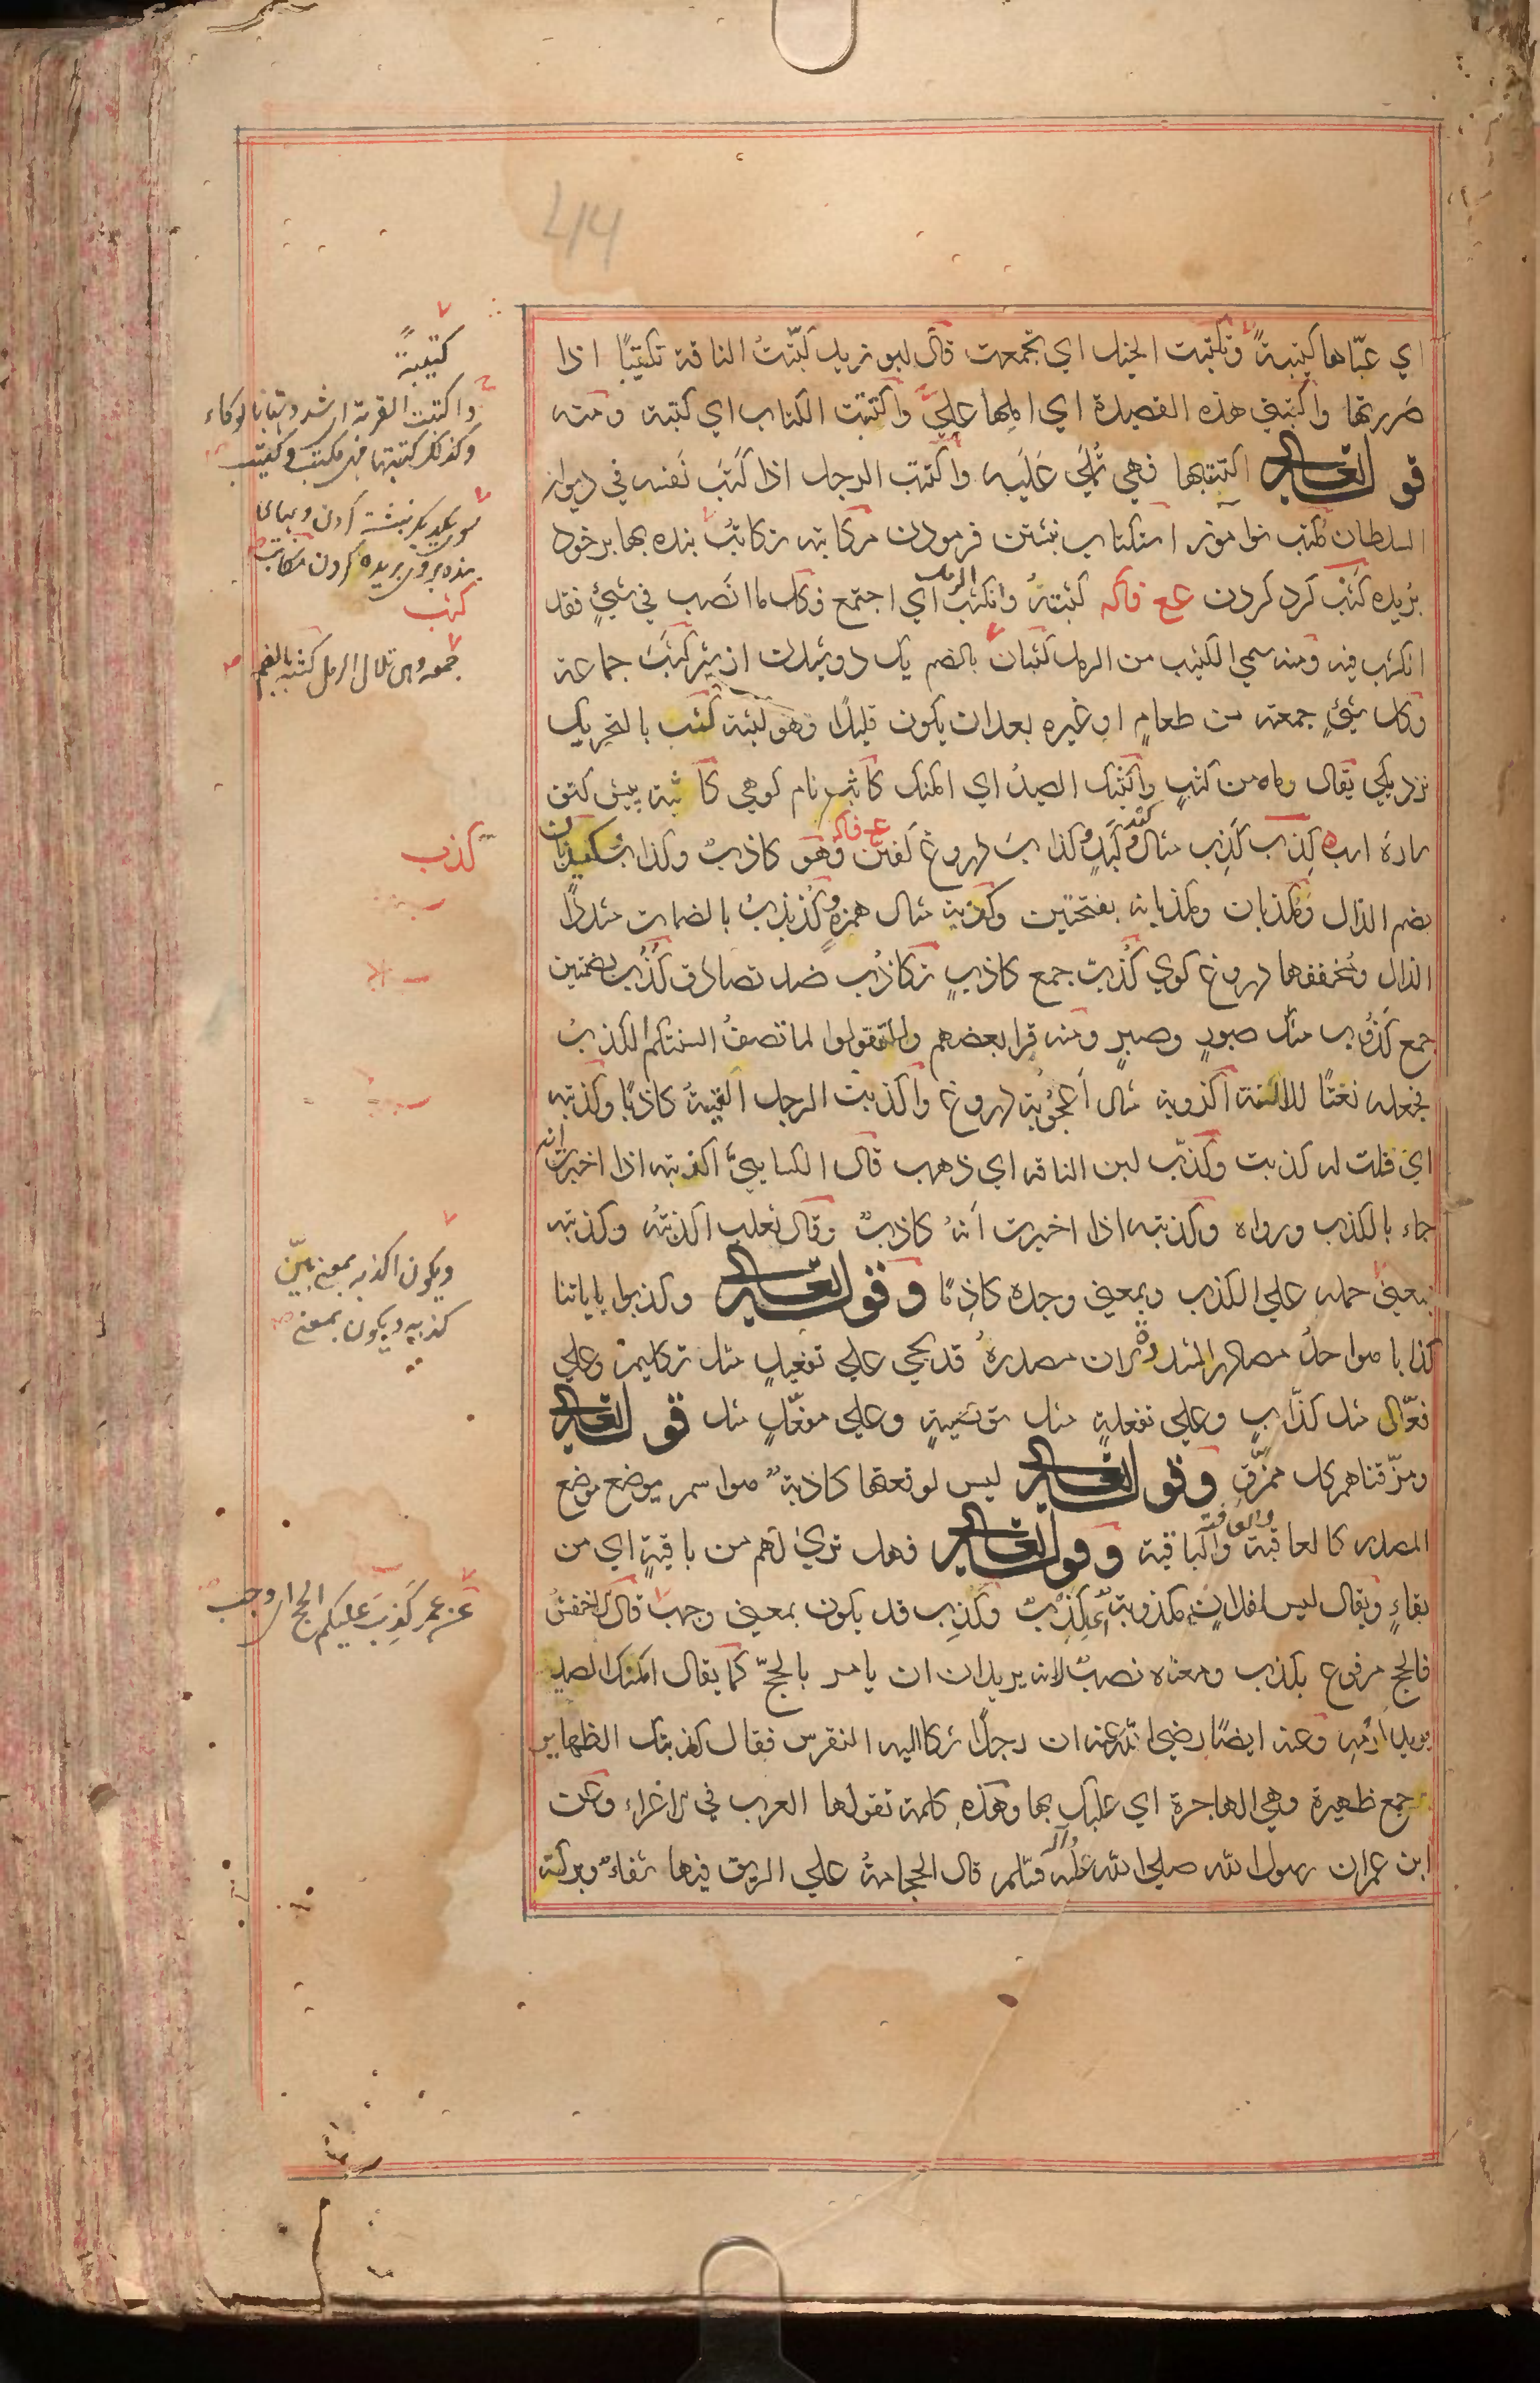 اي عبّاها كتيبةً وتكتبت الخيل اي تجمعت قال ابو زيد كتّبتُ الناقة تكتيبًا اذا
صررتها واكتبني هذه القصيدة اي املها عليّ واكتتبت الكتاب اي كتبته ومنه
قوله تعالى اكتتبها فهي تُملي عَلَيه واكتتب الرجل اذا كَتَبَ نَفسَه في ديوان
السلطان مكتب نوآموز استكتاب نبشتن فرمودن مكاتبه تكاتبُ بنده بها بر خود
بريده كَثب كرد كردن عع فاكه كثبتهُ وانكثبَ الرمل اي اجتمع وكل ما انصب في شيءٍ فقد
انكثب فيه ومنه سمي الكثيب من الرمل كثبان بالضم يك دوشيدن از شير كثبَ جماعة
وكل شيءٍ جمعته من طعامٍ او غيره بعد ان يكون قليلًا وهو كثبة كثب بالتحريك
نزديكي يقال رماه من كثبٍ واكثبك الصيدُ اي امكنك كاثب نام كوهي كاثبة پيش كتف
كِذب كَذِب مثال كبدٍ وكذاب دروغ گفتن عع فاكه وهو كاذبٌ وكذابٌ كيذبان
بضم الذال وكذبان وكذبانه بفتحتين وكذبة مثال همزةٍ وكُذبذبٌ بالضمات مشددًا
الذال ومخففها دروغ كوي كُذّبٌ جمع كاذبٍ تكاذُب ضد تصادق كُذُب بضمتين
جمع كَذوب مثل صبورٍ وصبرٍ ومنه قرا بعضهم ولا تقولوا لما تصفُ السنتكم الكذبُ
فجعله نعتًا للالسنة اكذوبة مثال اعجوبة دروغ واكذبت الرجل القيتهُ كاذبًا وكذبته
اي قلت له كذبت وكذّب لبن الناقه اي ذهب قال الكسايي اكذبته اذا اخبرت انه
جاء بالكذب ورواه وكذبته اذا اخبرت أنهُ كاذبٌ وقال ثعلب اكذبتُه وكذبته
بمعنى حمله علي الكذب وبمعني وجده كاذبًا وقوله تعالى وكذبوا باياتنا
كذابا هو احدُ مصادر المشدد لان مصدرهُ قد يجي علي تفعيلٍ مثل تكليم وعلي
فعّال مثل كذّابٍ وعلي تفعلةٍ مثل توصيةٍ وعلي مفعّلٍ مثل قوله تعالى
ومزّقناهم كل ممزّق وقوله تعالى ليس لوقعتها كاذبةٌ هو اسم يوضع موضع
المصدر كالعاقبة والعافية والباقية وقوله تعالى فهل تري لهم من باقيةٍ اي من
بقاءٍ ويقال ليس لفلانٍ مكذوبةٌ اي كذبٌ وكذِب قد يكون بمعني وجب قال الاخفشُ
فالحج مرفوع بكذب ومعناه نصبٌ لانه يريد ان يامر بالحجّ كما يقال امكنك الصيد
يريد ارمهِ وعنه ايضًا رضي الله عنه ان رجلًا شكا اليه النقرس فقال كذبتك الظهاير
جمع ظهيرة وهي الهاجرة اي عليك بها وهذهِ كلمة تقولها العرب في الاغراء وعن
ابن عمر ان رسول الله صلى الله عليه وآله وسلم قال الحجامةُ علي الريق فيها شفاءٌ وبركة
كتيبةً
واكتبت القربة اي شددتها بالوكاء
وكذلك كتبتها فهي مكتب وكتيب
كثب
جمعه وهي تلال الرمل كثبه بالضم
كذب
ويكون اكذبه بمعنى بيّن
كذبه ويكون بمعنى
عن عمر كَذِبَ عليكم الحج اي وجب